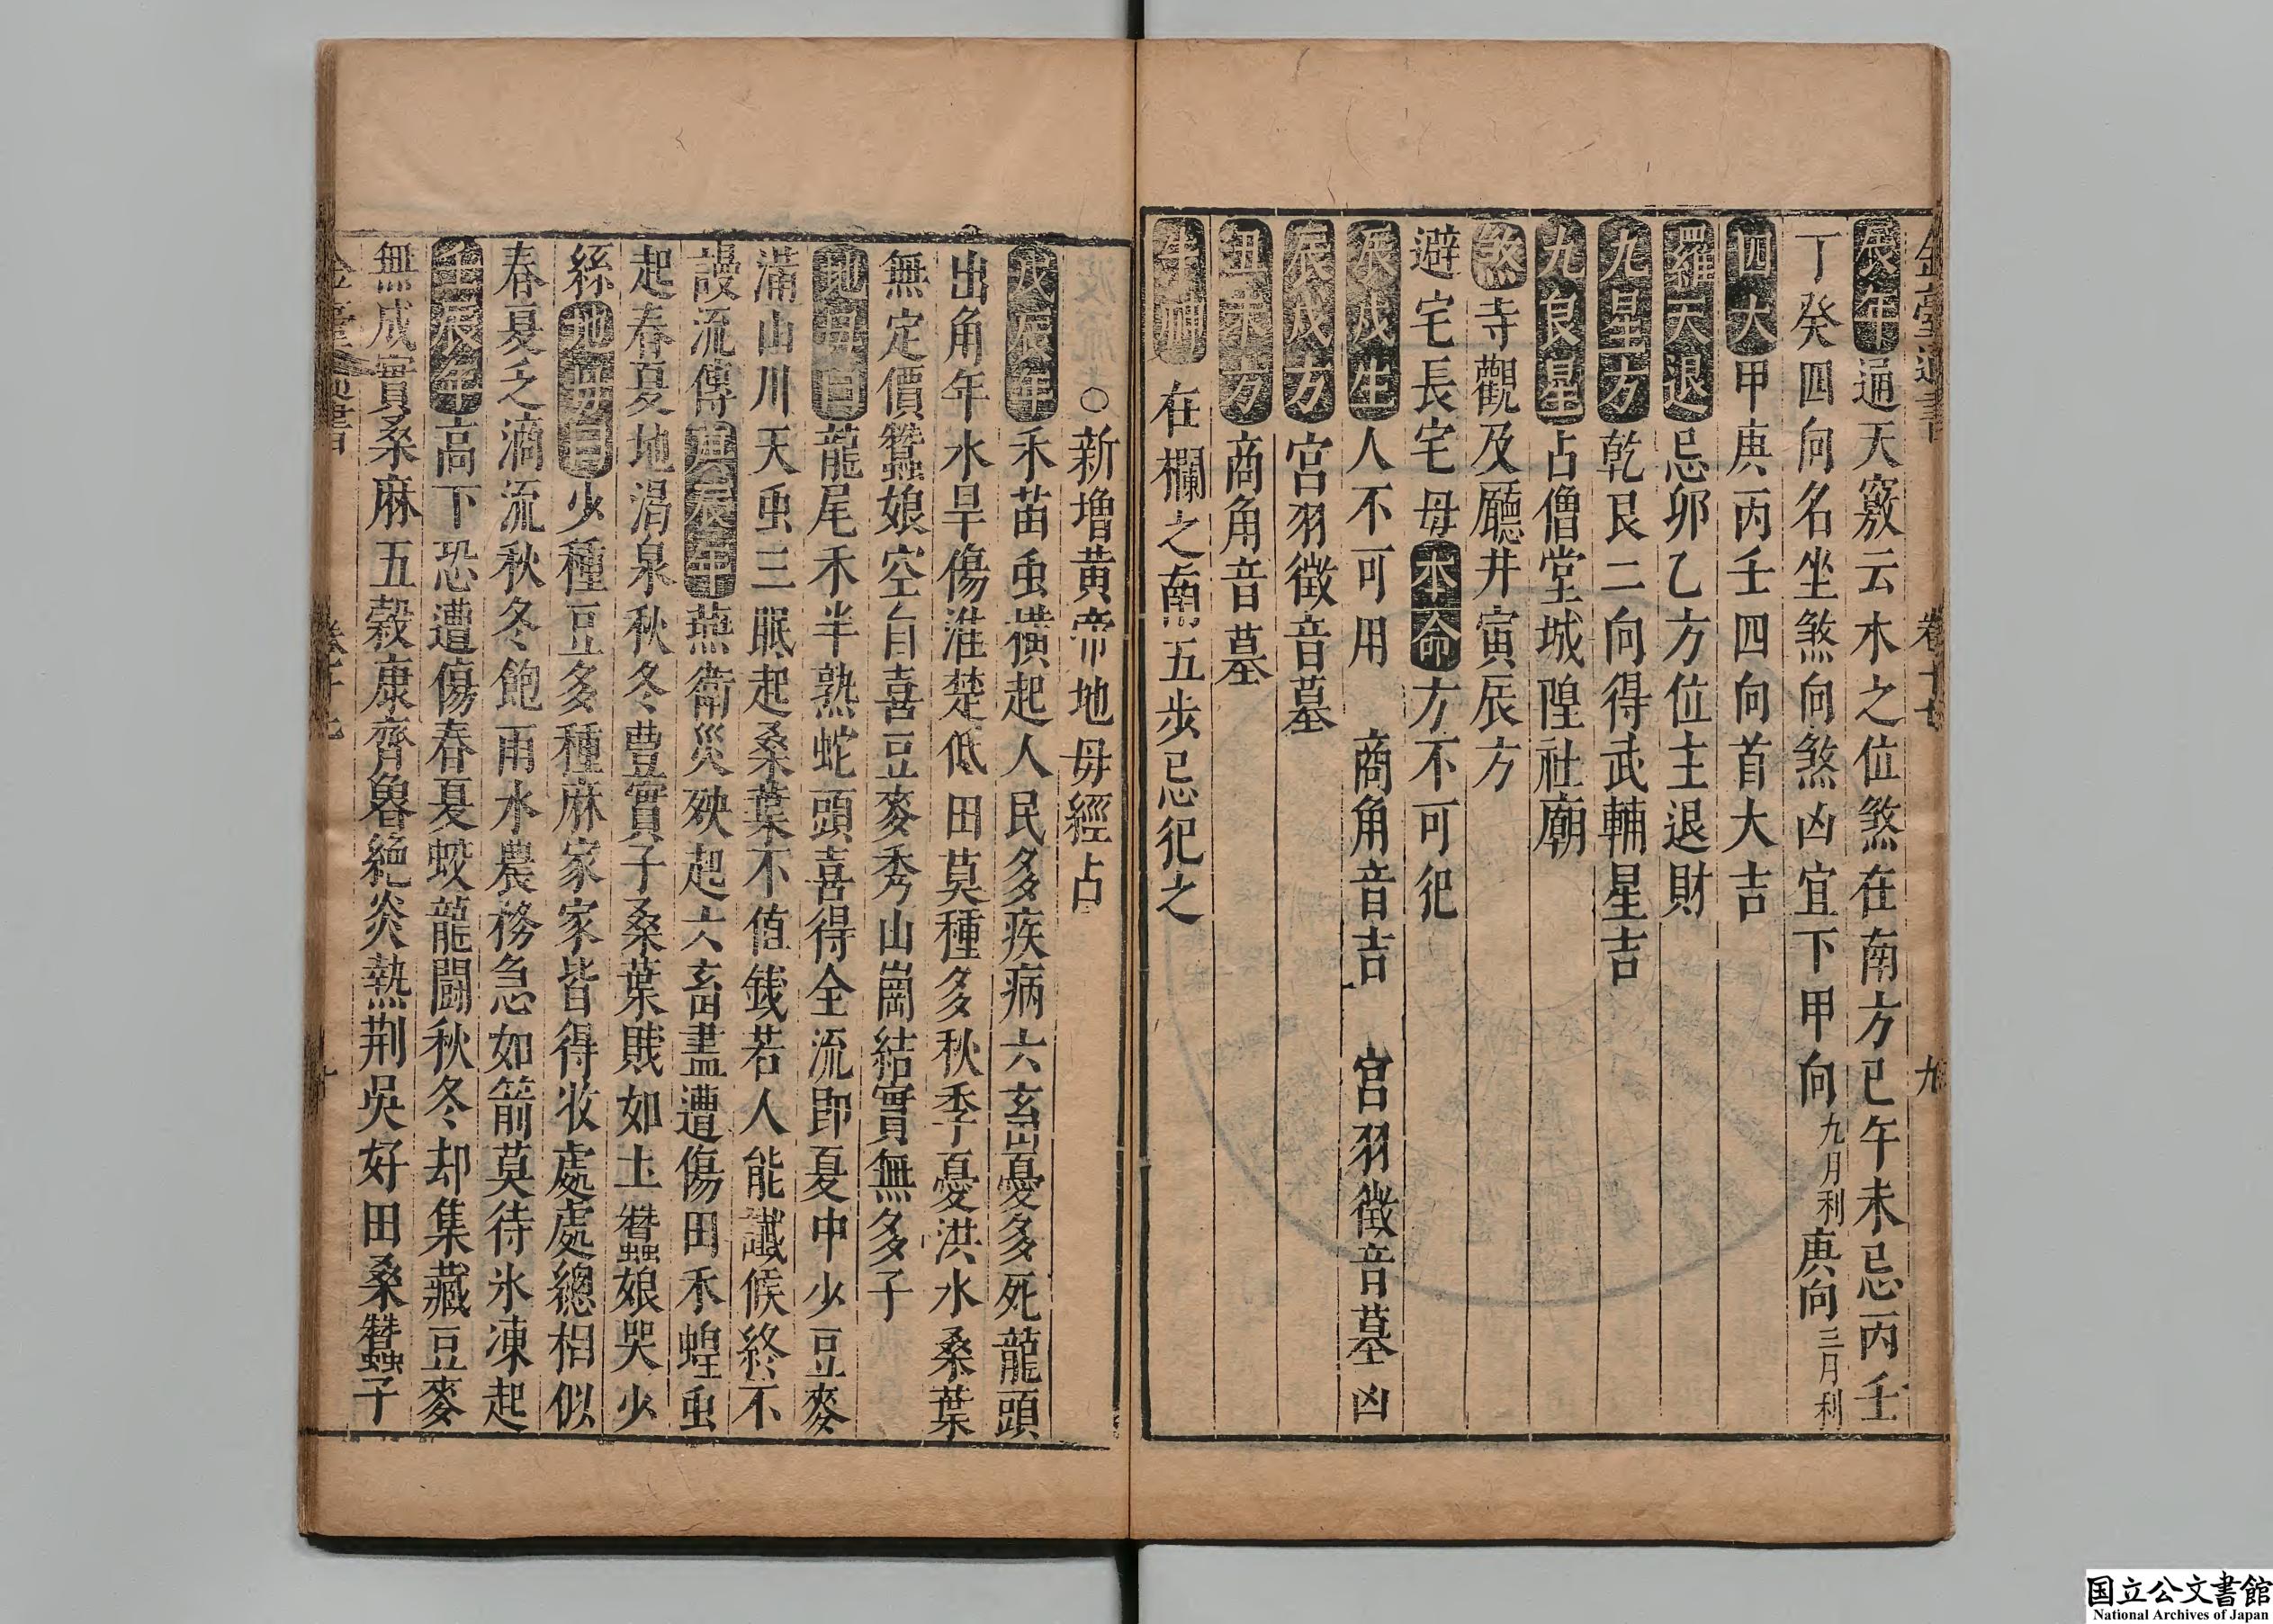 辰年通天竅云木之位煞在南方巳午未忌丙壬
丁癸四向名坐煞向煞凶宜下甲向九月利庚向三月利
四大甲庚丙壬四向首大吉
羅天退忌卯乙方位主退財
九星方乾艮二向得武輔星吉
九良星占僧堂城隍社廟
煞寺觀及廳井寅辰方
避宅長宅母本命方不可犯
辰戌生人不可用 商角音吉 宮羽徵音墓凶
辰戌方宮羽徵音墓
丑未方商角音墓
在欄之南五步忌犯之
卷十七
九
○新增黃帝地母經占
戊辰年禾苗虫橫起人民多疾病六畜憂多死龍頭
出角年水旱傷淮楚低田莫種多秋季憂洪水桑葉
無定價蠶娘空自喜豆麥秀山崗結實無多子
地母曰龍尾禾半熟蛇頭喜得全流郎夏中少豆麥
滿山川天虫三眠起桑葉不值錢若人能識候終不
謾流傳庚辰年燕衛災殃起六畜盡遭傷田禾蝗虫
起春夏地涓泉秋冬豊實子桑葉賎如土蠶娘哭少
絲地母曰少種豆多種麻家家皆得收處處總相似
春夏乏滴流秋冬飽雨水農務急如箭莫待氷凍起
壬辰年高下恐遭傷春夏蛟龍鬪秋冬却集藏豆麥
無成實桑麻五穀康齊魯絶炎熱荆吳好田桑蠶子
国立公文書館
National Archives of Japan